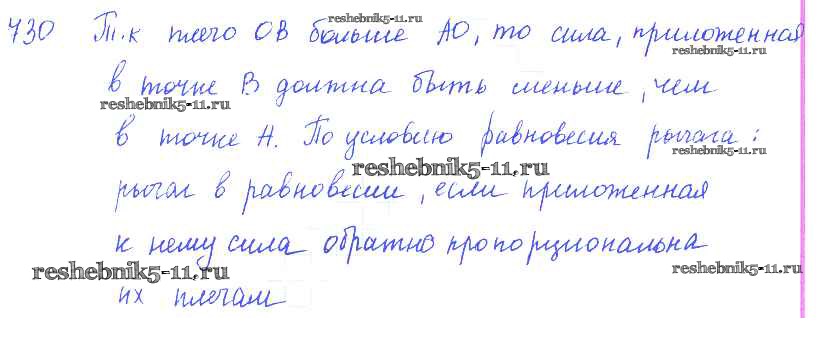 reshebnik5-11.ru
730 Т.к плечо ОВ больше АО, то сила, приложенная
reshebnik5-11.ru
в точке В должна быть меньше, чем
reshebnik5-11.ru
в точке А. По условию равновесия рычага:
reshebnik5-11.ru
reshebnik5-11.ru
рычаг в равновесии, если приложенная
к нему сила обратно пропорциональна
reshebnik5-11.ru
reshebnik5-11.ru
их плечам